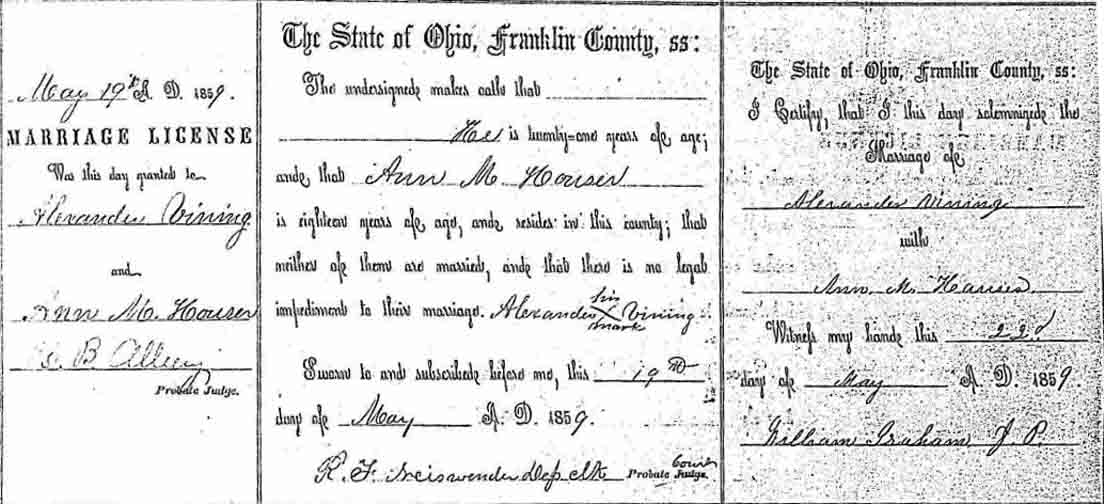 May 19th A. D. 1859.
MARRIAGE LICENSE
Was this day granted to
Alexander Vining
and
Ann M. Houser
B Allen
Probate Judge.
The State of Ohio, Franklin County, ss:
The undersigned makes oath that
He is twenty-one years of age;
and that Ann M Houser
is eighteen years of age, and resides in this county; that
neither of them are married, and that there is no legal
impediment to their marriage. Alexander his X mark Vining
Sworn to and subscribed before me, this 19th
day of May A. D. 1859.
R. F. Neiswender Dep clk Probate Judge. Court
The State of Ohio, Franklin County, ss:
I Certify, that I this day solemnized the
Marriage of
Alexander Vining
with
Ann. M. Houser
Witness my hand this 22d
day of May A. D. 1859
William Graham J. P.